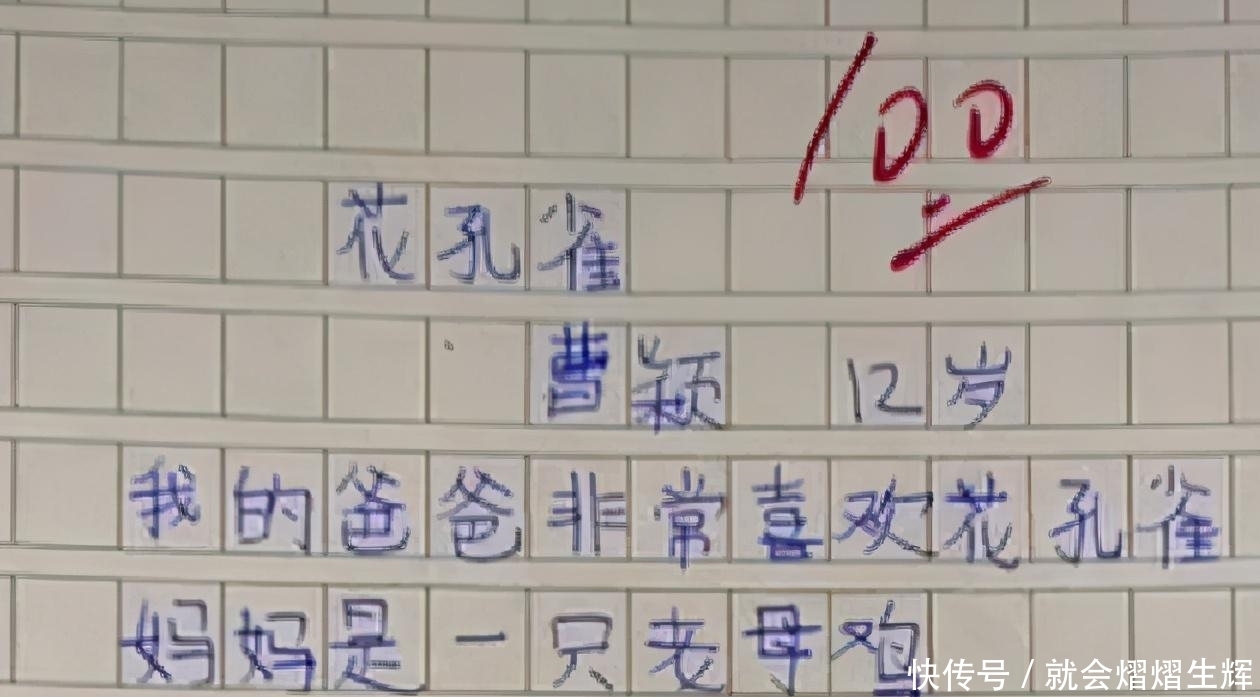 100
花孔雀
曹颖 12岁
我的爸爸非常喜欢花孔雀
妈妈是一只老母鸡
快传号 / 就会熠熠生辉